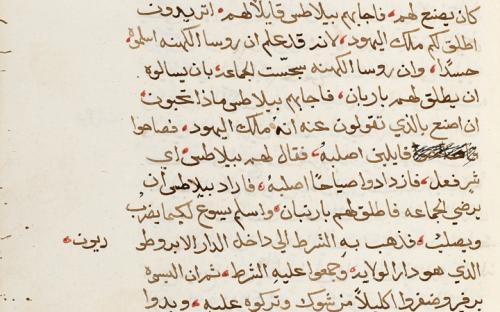 كان يصنع لهم، فاجابهم بيلاطس قايلا لهم، اتريدون
اطلق لكم ملك اليهود، لانه قد علم ان روسا الكهنه اسلموه
حسدا، وان روسا الكهنه سجّست الجماعه، بان يسالوه
ان يطلق لهم باربان، فاجابهم بيلاطس ماذا تحبون
ان اصنع بالذي تقولون عنه انه ملك اليهود، فصاحوا
قايلين اصلبه، فقال لهم بيلاطس اي
شر فعل، فازدادوا صياحا اصلبه، فاراد بيلاطس ان
يرضي الجماعه فاطلق لهم باربان، واسلم يسوع لكيما يضرب
ويصلب، فذهب به الشرط الى داخل الدار الابروطى ريون،
الذي هو دار الولايه، وجمعوا عليه الشرط، ثمران البسوه
برفير وضفروا اكليلا من شوك وتركوه عليه، وبدوا